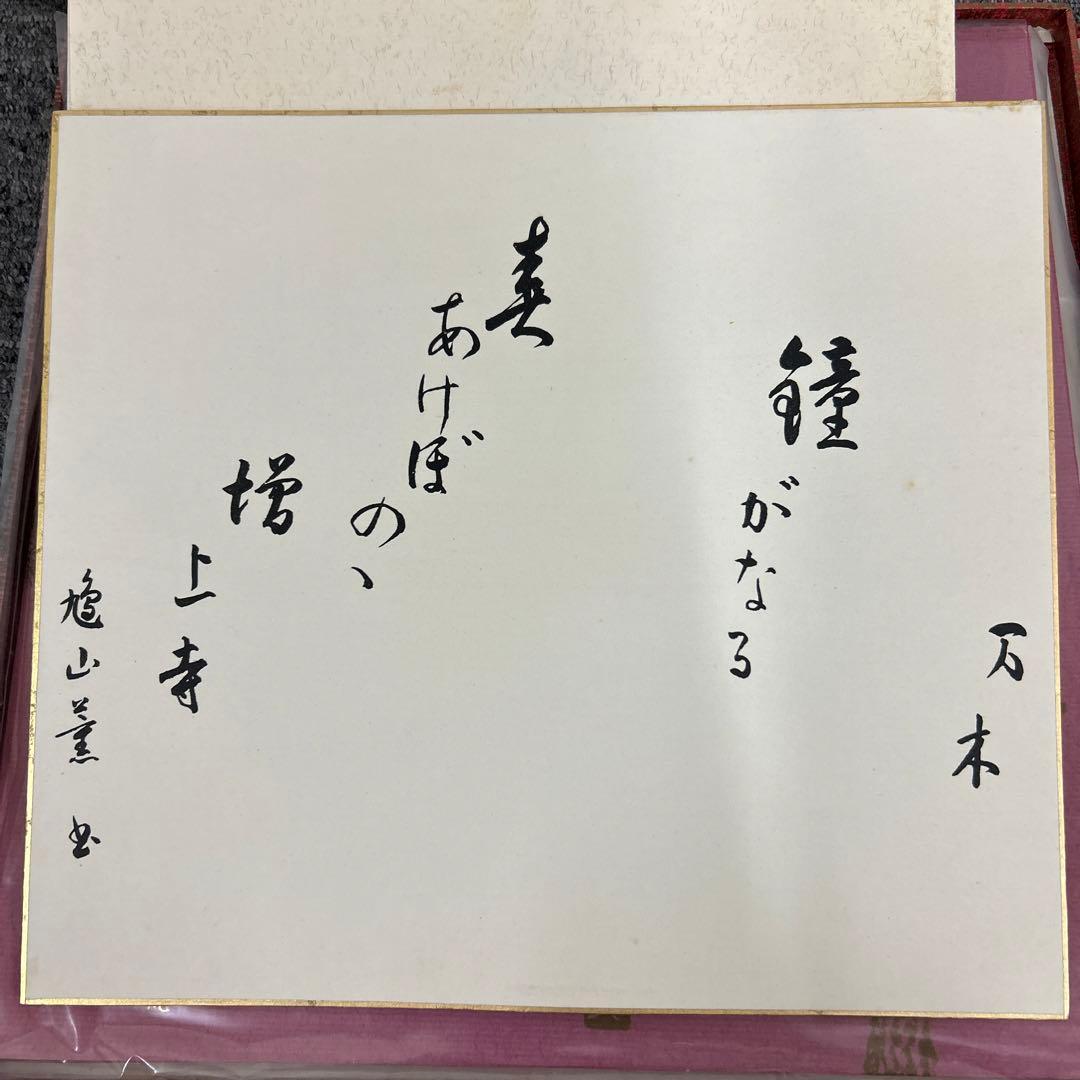 万木
鐘がなる
春あけぼのゝ
増上寺
鳩山薫書